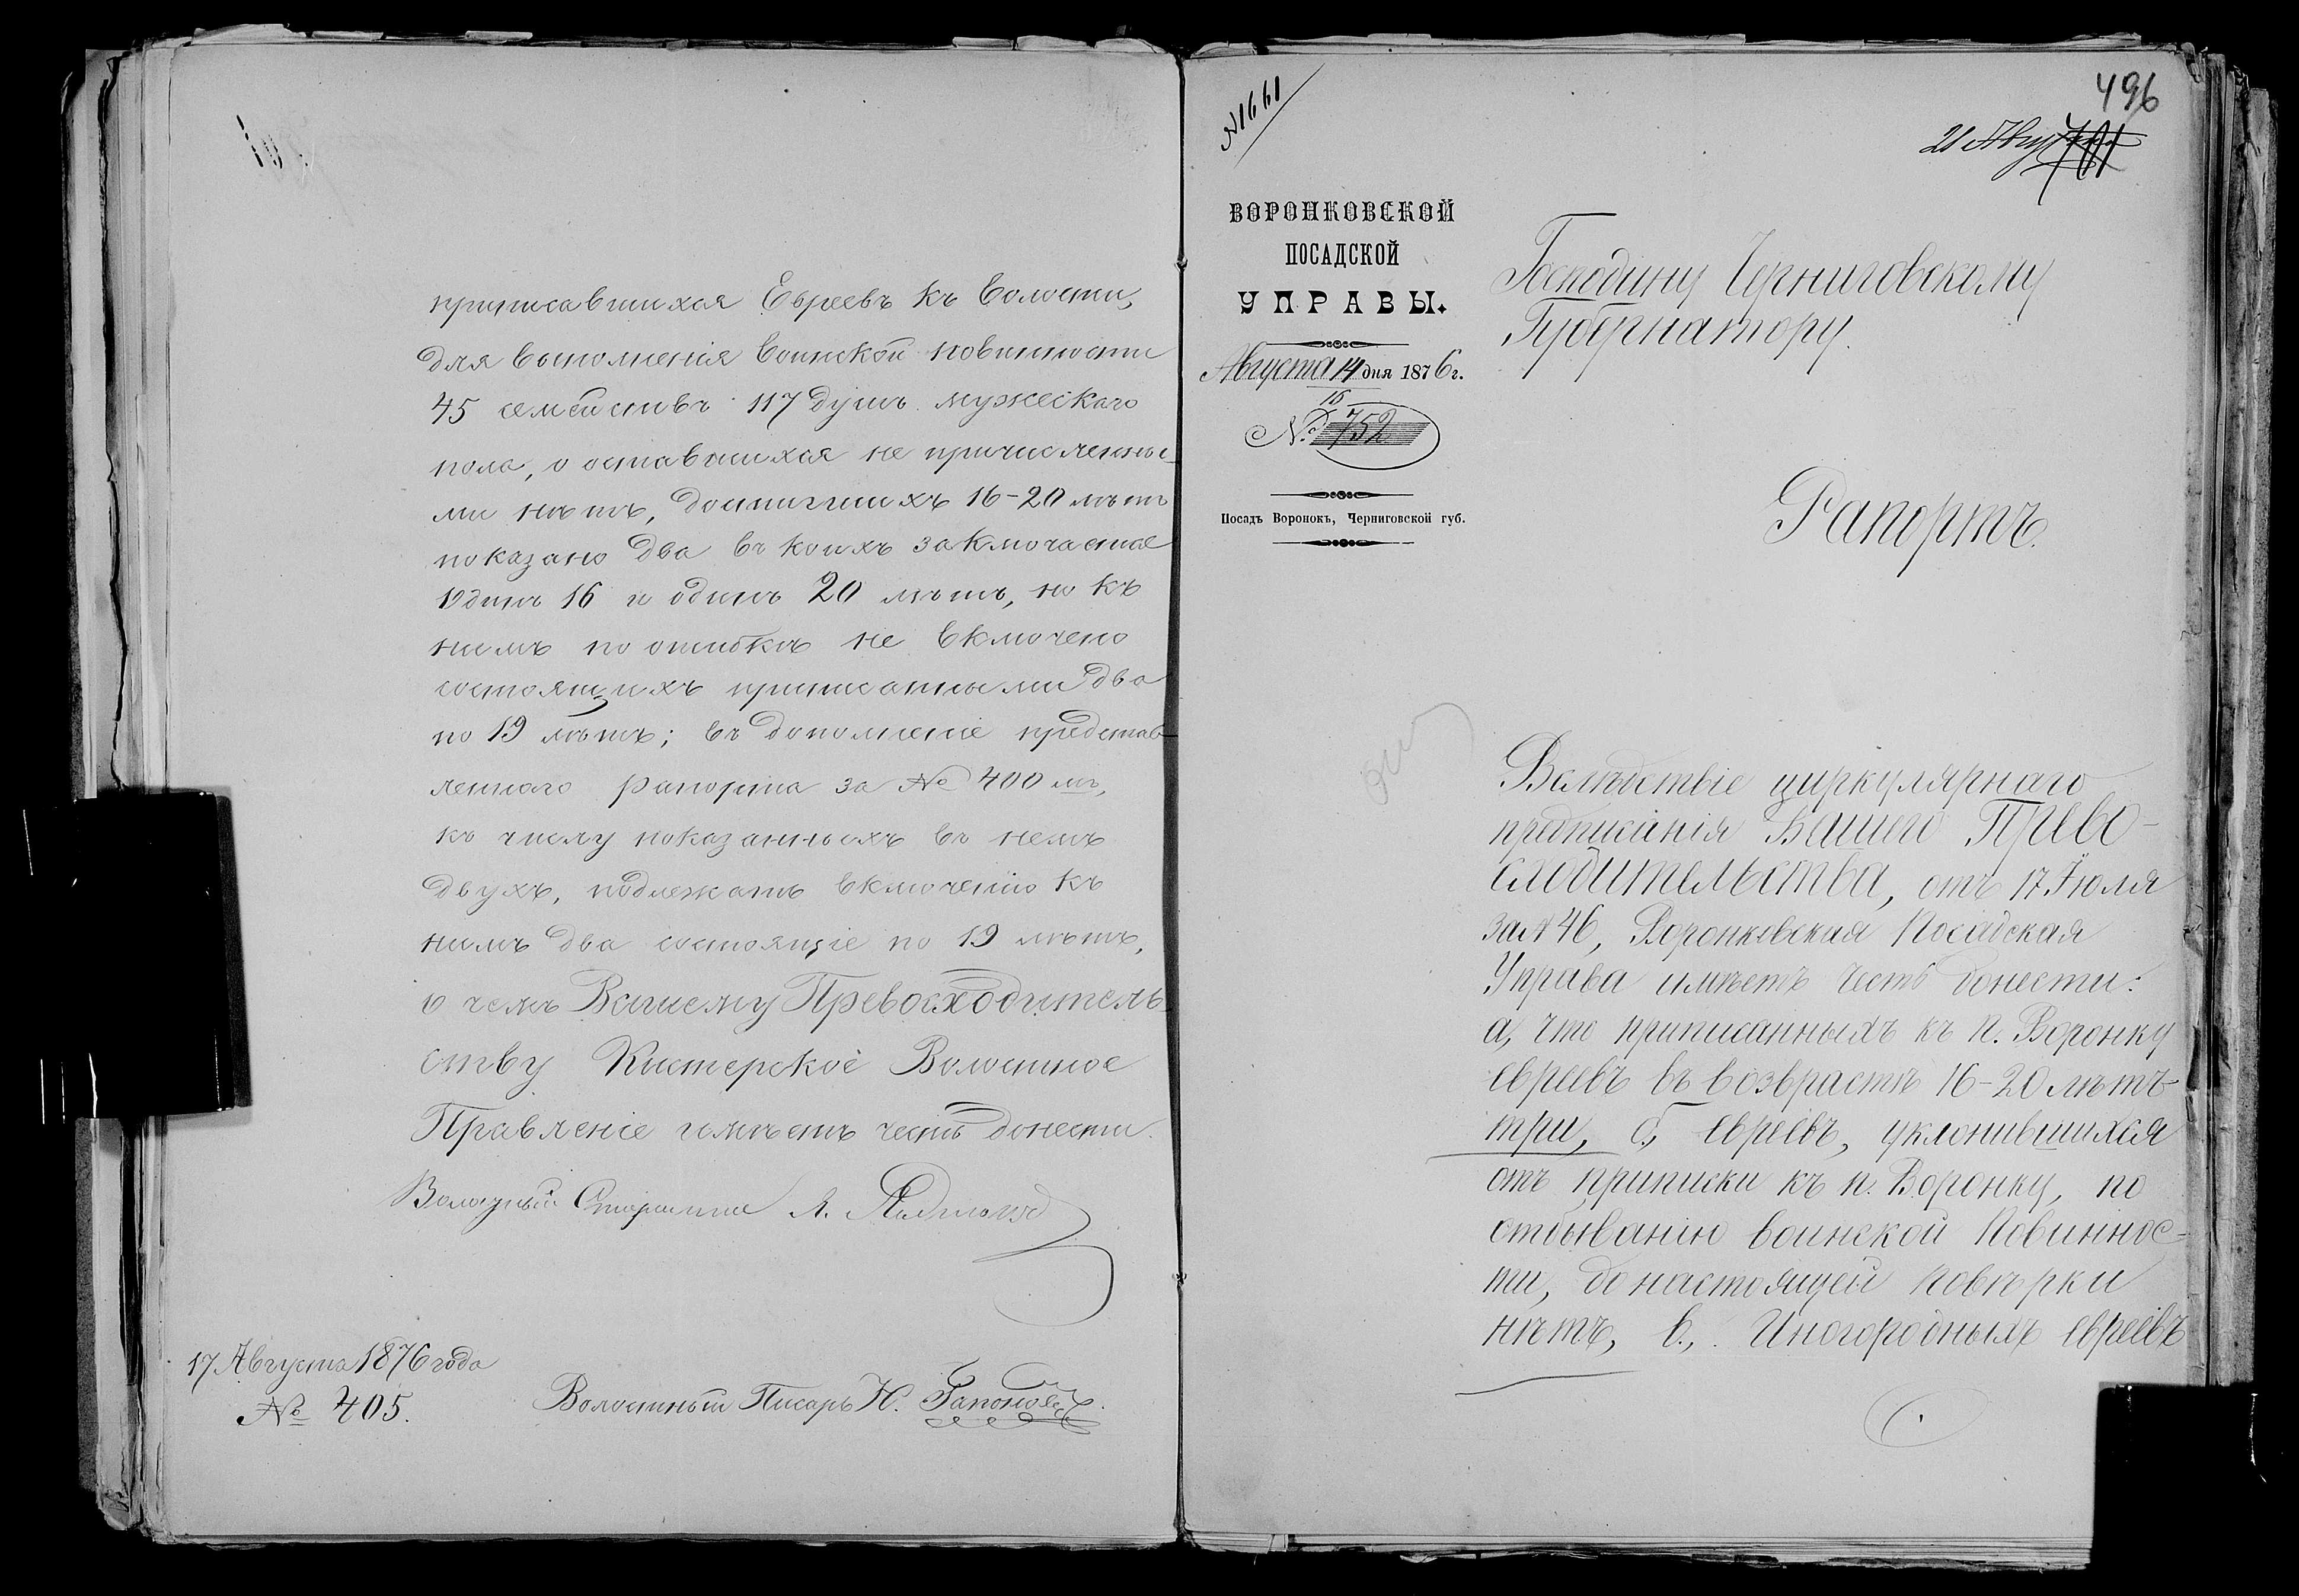 приписавшихся Евреевъ къ Волости,
для выполненія воинской повинности
45 семействъ 117 душъ мужескаго
пола, а оставшихся не причисленны-
ми нѣтъ, достигшихъ 16-20 лѣтъ
показано два въ коихъ заключается
один 16 и одинъ 20 лѣтъ, но къ
нимъ по ошибкѣ не включено
состоящихъ приписанными два
по 19 лѣтъ; въ дополненіе представ-
леннаго рапорта за № 400 мъ,
къ числу показанныхъ въ немъ
двухъ, подлежатъ включенію къ
нимъ два состоящіе по 19 лѣтъ,
о чемъ Вашему Превосходитель-
ству Кистерское Волостное
Правленіе имѣетъ честь донести.
Волостный Старшина А.
17 Августа 1876 года
№ 405.
Волостный Писарь Н. Гапоновъ.
№ 1661
496
21 Авгу
701
ВОРОНКОВСКОЙ
ПОСАДСКОЙ
УПРАВЫ.
Августа 14 дня 1876 г.
16
№ 752
Посадъ Воронокъ, Черниговской губ.
Господину Черниговскому
Губернатору.
Рапортъ.
Вслѣдствіе циркулярнаго
предписанія Вашего Прево-
сходительства, отъ 17 Іюля
за № 46, Воронковская Посадская
Управа имѣетъ честь донести:
а, что приписанныхъ къ п. Воронку
евреевъ въ возврастѣ 16-20 лѣтъ
три, б, евреевъ, уклонившихся
отъ приписки къ п. Воронку, по
отбыванію воинской повиннос-
ти, до настоящей повѣрки
нѣтъ, в., Иногородныхъ евреевъ